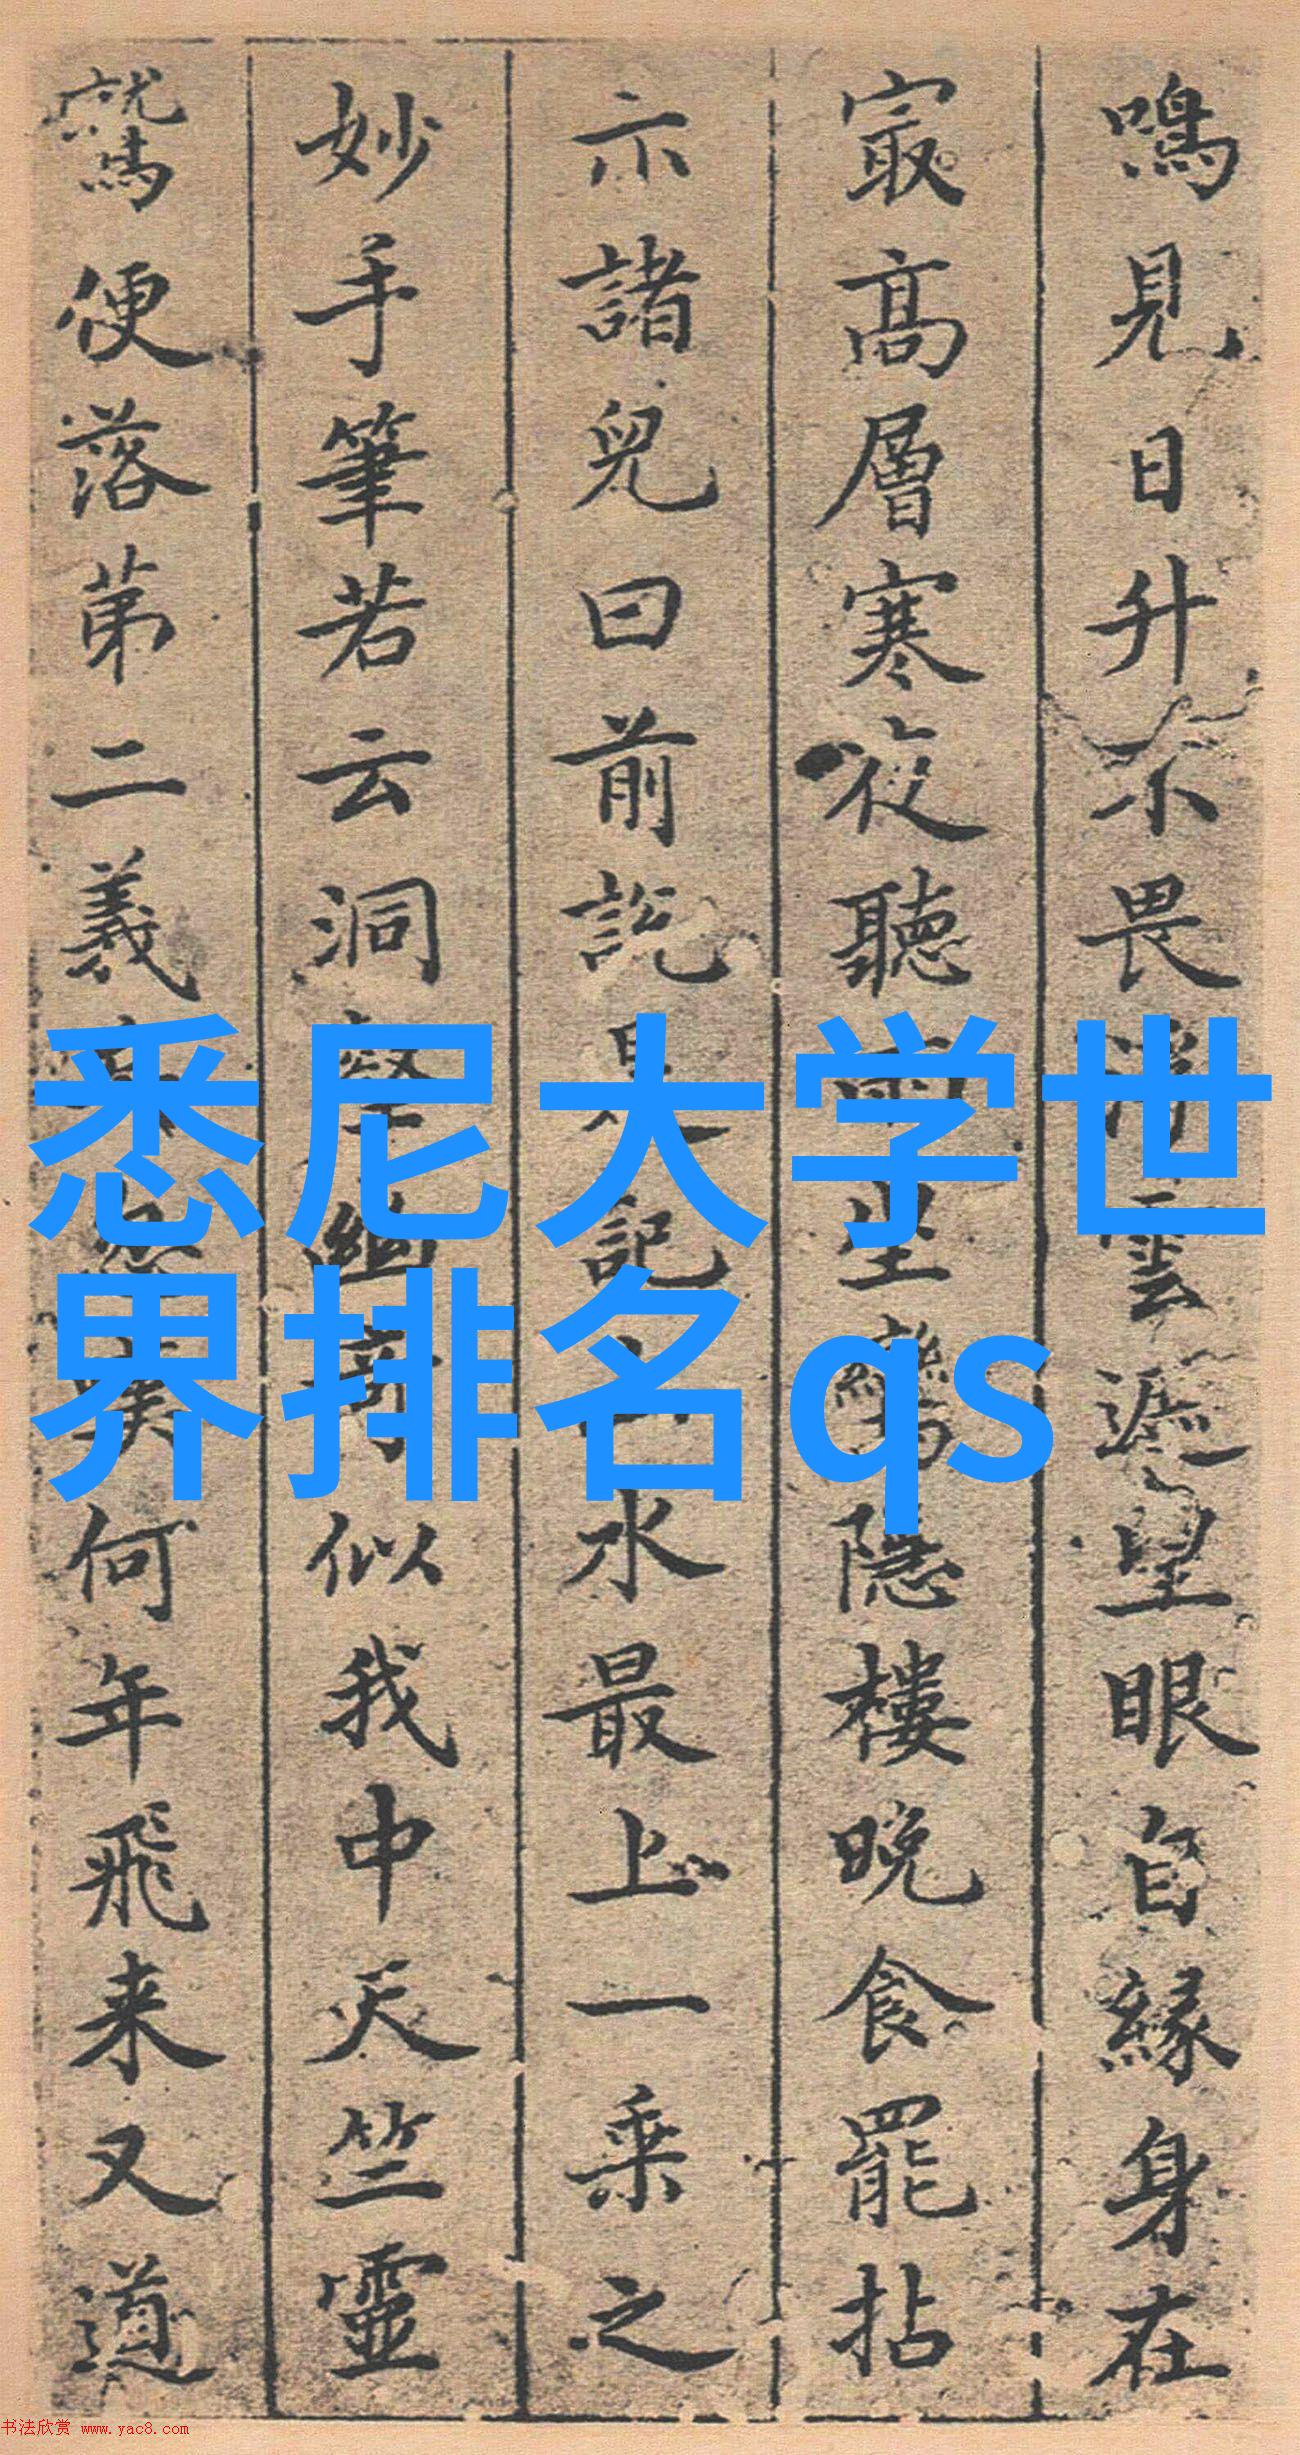 鳴見日升不畏浮雲遮望眼自緣身在
最高層寒夜聽雨坐鸞隱樓晚食罷拈
示諸兒曰前說是記山水最上一乘之
妙手筆若云洞壑幽奇似我中天竺靈
鷲便落第二義何年飛来又道
悉尼大学世
界排名qs
书法欣赏 www.yac8.com